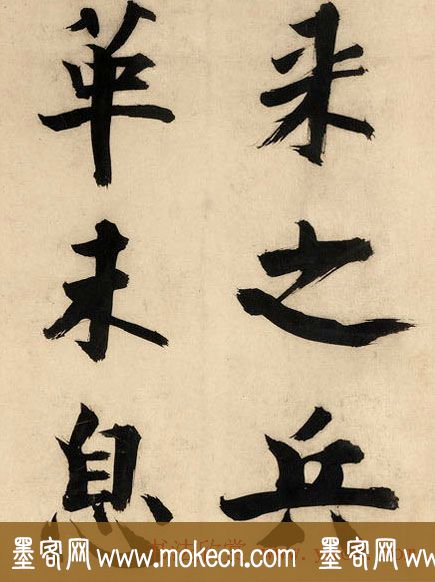 来之兵
革未息
墨客网 www.mokecn.com 墨客网